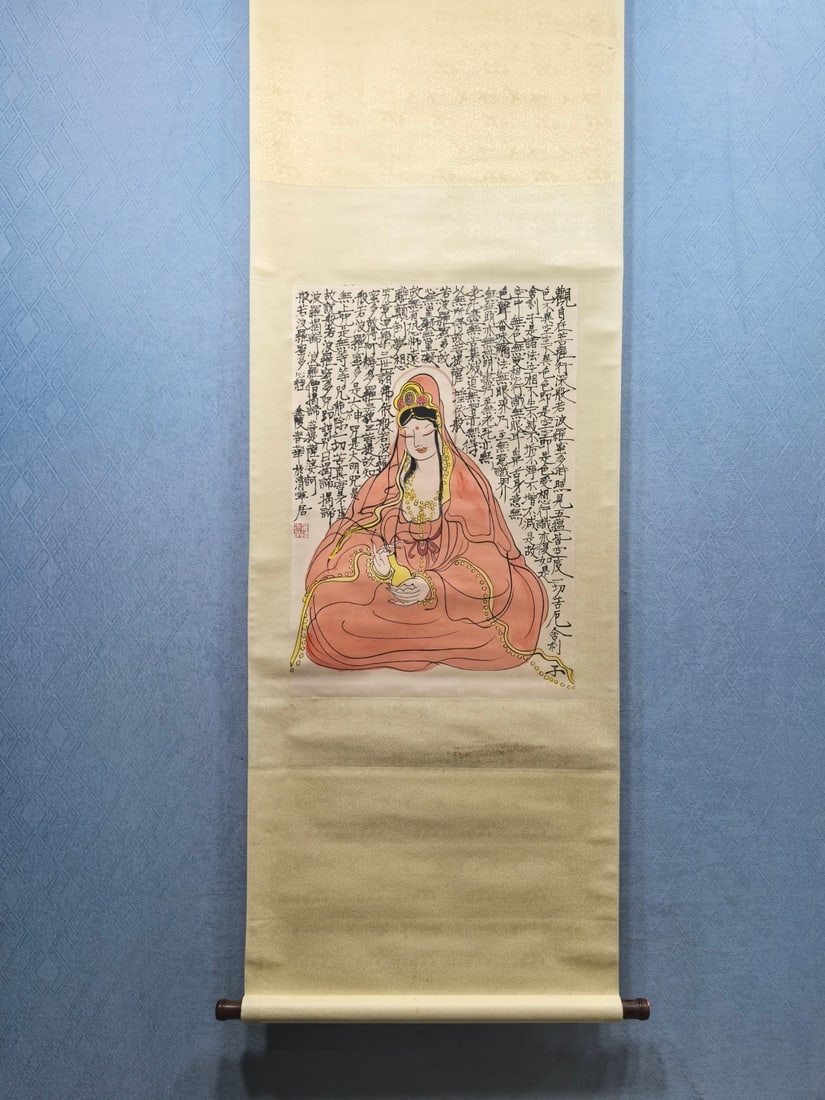 觀自在菩薩行深般若波羅蜜多時照見五蘊皆空度一切苦厄舍利子
色不異空空不異色色即是空空即是色受想行識亦復如是
舍利子是諸法空相不生不滅不垢不淨不增不減是故
空中無色無受想行識無眼耳鼻舌身意無
色聲香味觸法無眼界乃至無意識界
無無明亦無無明盡乃至無老死亦無
老死盡無苦集滅道無智亦無得
以無所得故菩提薩埵依般
若波羅蜜多故
心無罣礙無罣礙
故無有恐怖遠
離顛倒夢想
究竟涅槃三世諸佛依般若波羅
蜜多故得阿耨多羅三藐三菩提故知
般若波羅蜜多是大神咒是大明咒是
無上咒是無等等咒能除一切苦真實不虛
故說般若波羅蜜多咒即說咒曰揭諦揭諦
波羅揭諦波羅僧揭諦菩提薩婆訶
般若波羅蜜多心經